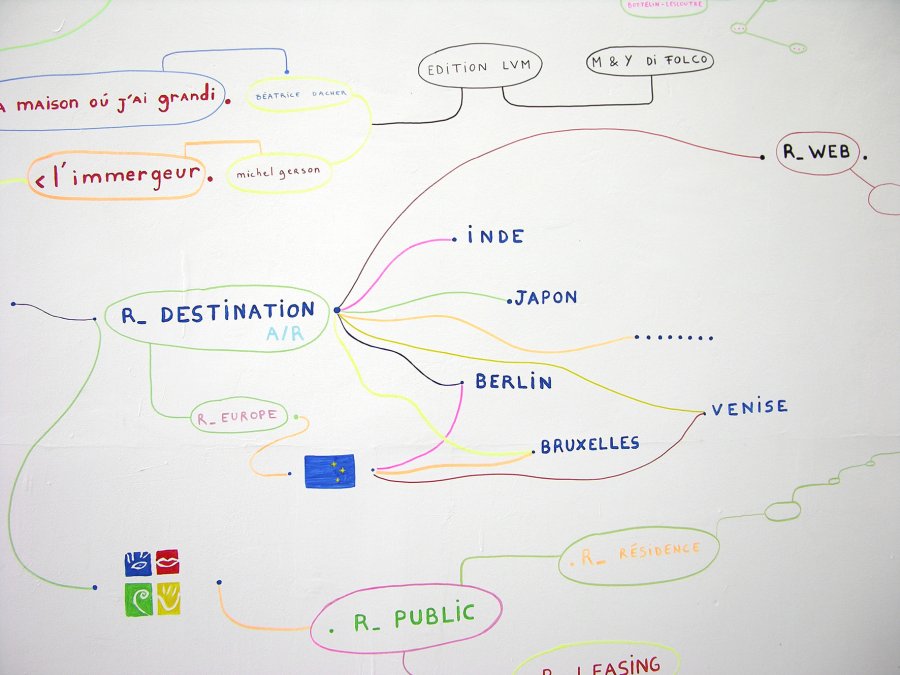 BOTTELIN-LESCOUTRE
EDITION LVM
M & Y Di FOLCO
A MAISON OÚ J'AI GRANDI.
BÉATRICE DACHER
< l'immergeur.
michel gerson
R_ WEB .
iNDE
JAPON
R_ DESTiNATiON
A/R
.......
BERLiN
VENiSE
R_ EUROPE
BRUXELLES
. R_ RÉSIDENCE
. R_ PUBLiC
R_ LEASiNG